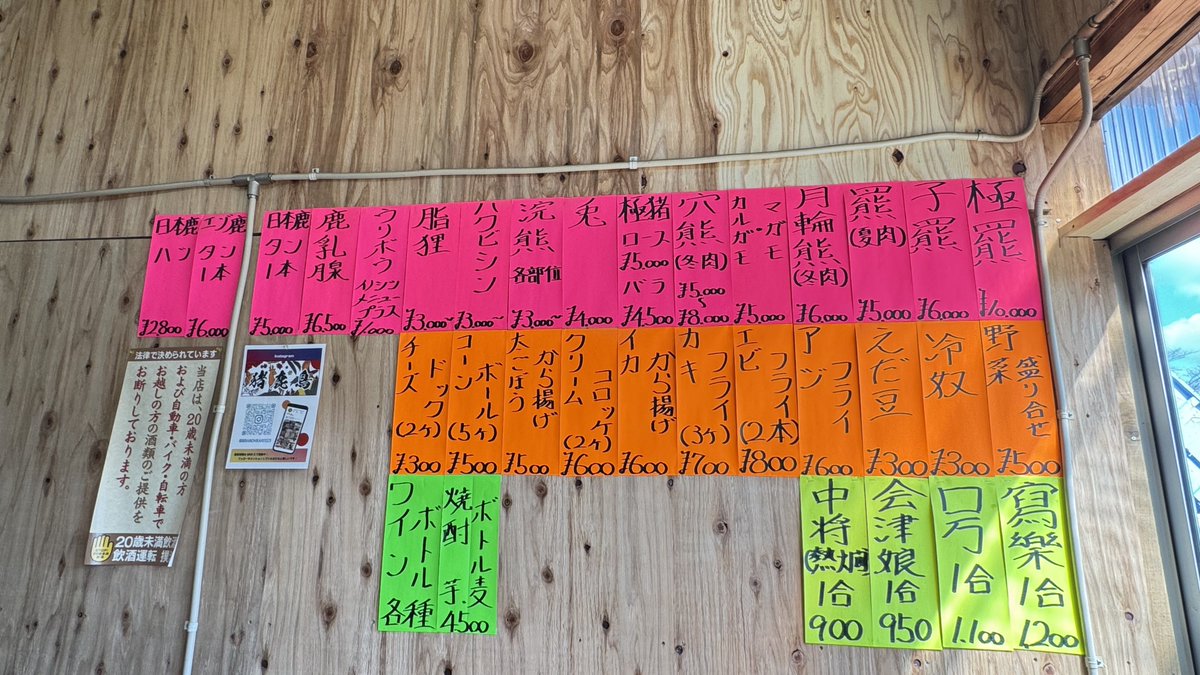 極羆
¥10,000
子羆
¥6,000
羆
(夏肉)
¥5,000
月輪熊
(冬肉)
¥6,000
マガモ
カルガモ
¥5,000
穴熊
(冬肉)
¥5,000
〜
¥8,000
極猪
ロース
¥5,000
バラ
¥4,500
兎
¥4,000
浣熊
各部位
¥3,000〜
ハクビシン
¥3,000〜
脂狸
¥3,000〜
ウリボウ
イノシシ
メニュー
プラス
¥1,000
鹿乳腺
¥6,500
タン
¥5,000
¥6,000
¥2800
野菜
盛り合せ
¥500
冷奴
¥300
えだ豆
¥300
アジ
フライ
¥600
エビ
フライ
(2本)
¥800
カキ
フライ
(3ケ)
¥700
イカ
から揚げ
¥600
クリーム
コロッケ
(2ケ)
¥600
太ごぼう
から揚げ
¥500
コーン
ボール
(5ケ)
¥500
チーズ
ドック
(2ケ)
¥300
寫樂
1合
1.200
ロ万
1合
1.100
会津娘
1合
950
中将
(熱燗)
1合
900
焼酎
ボトル
麦
芋、
4500
ワイン
ボトル
各種
法律で決められています
当店は、20歳未満の方
および自動車・バイク・自転車で
お越しの方の酒類のご提供を
お断りしております。
20歳未満飲
飲酒運転
Instagram